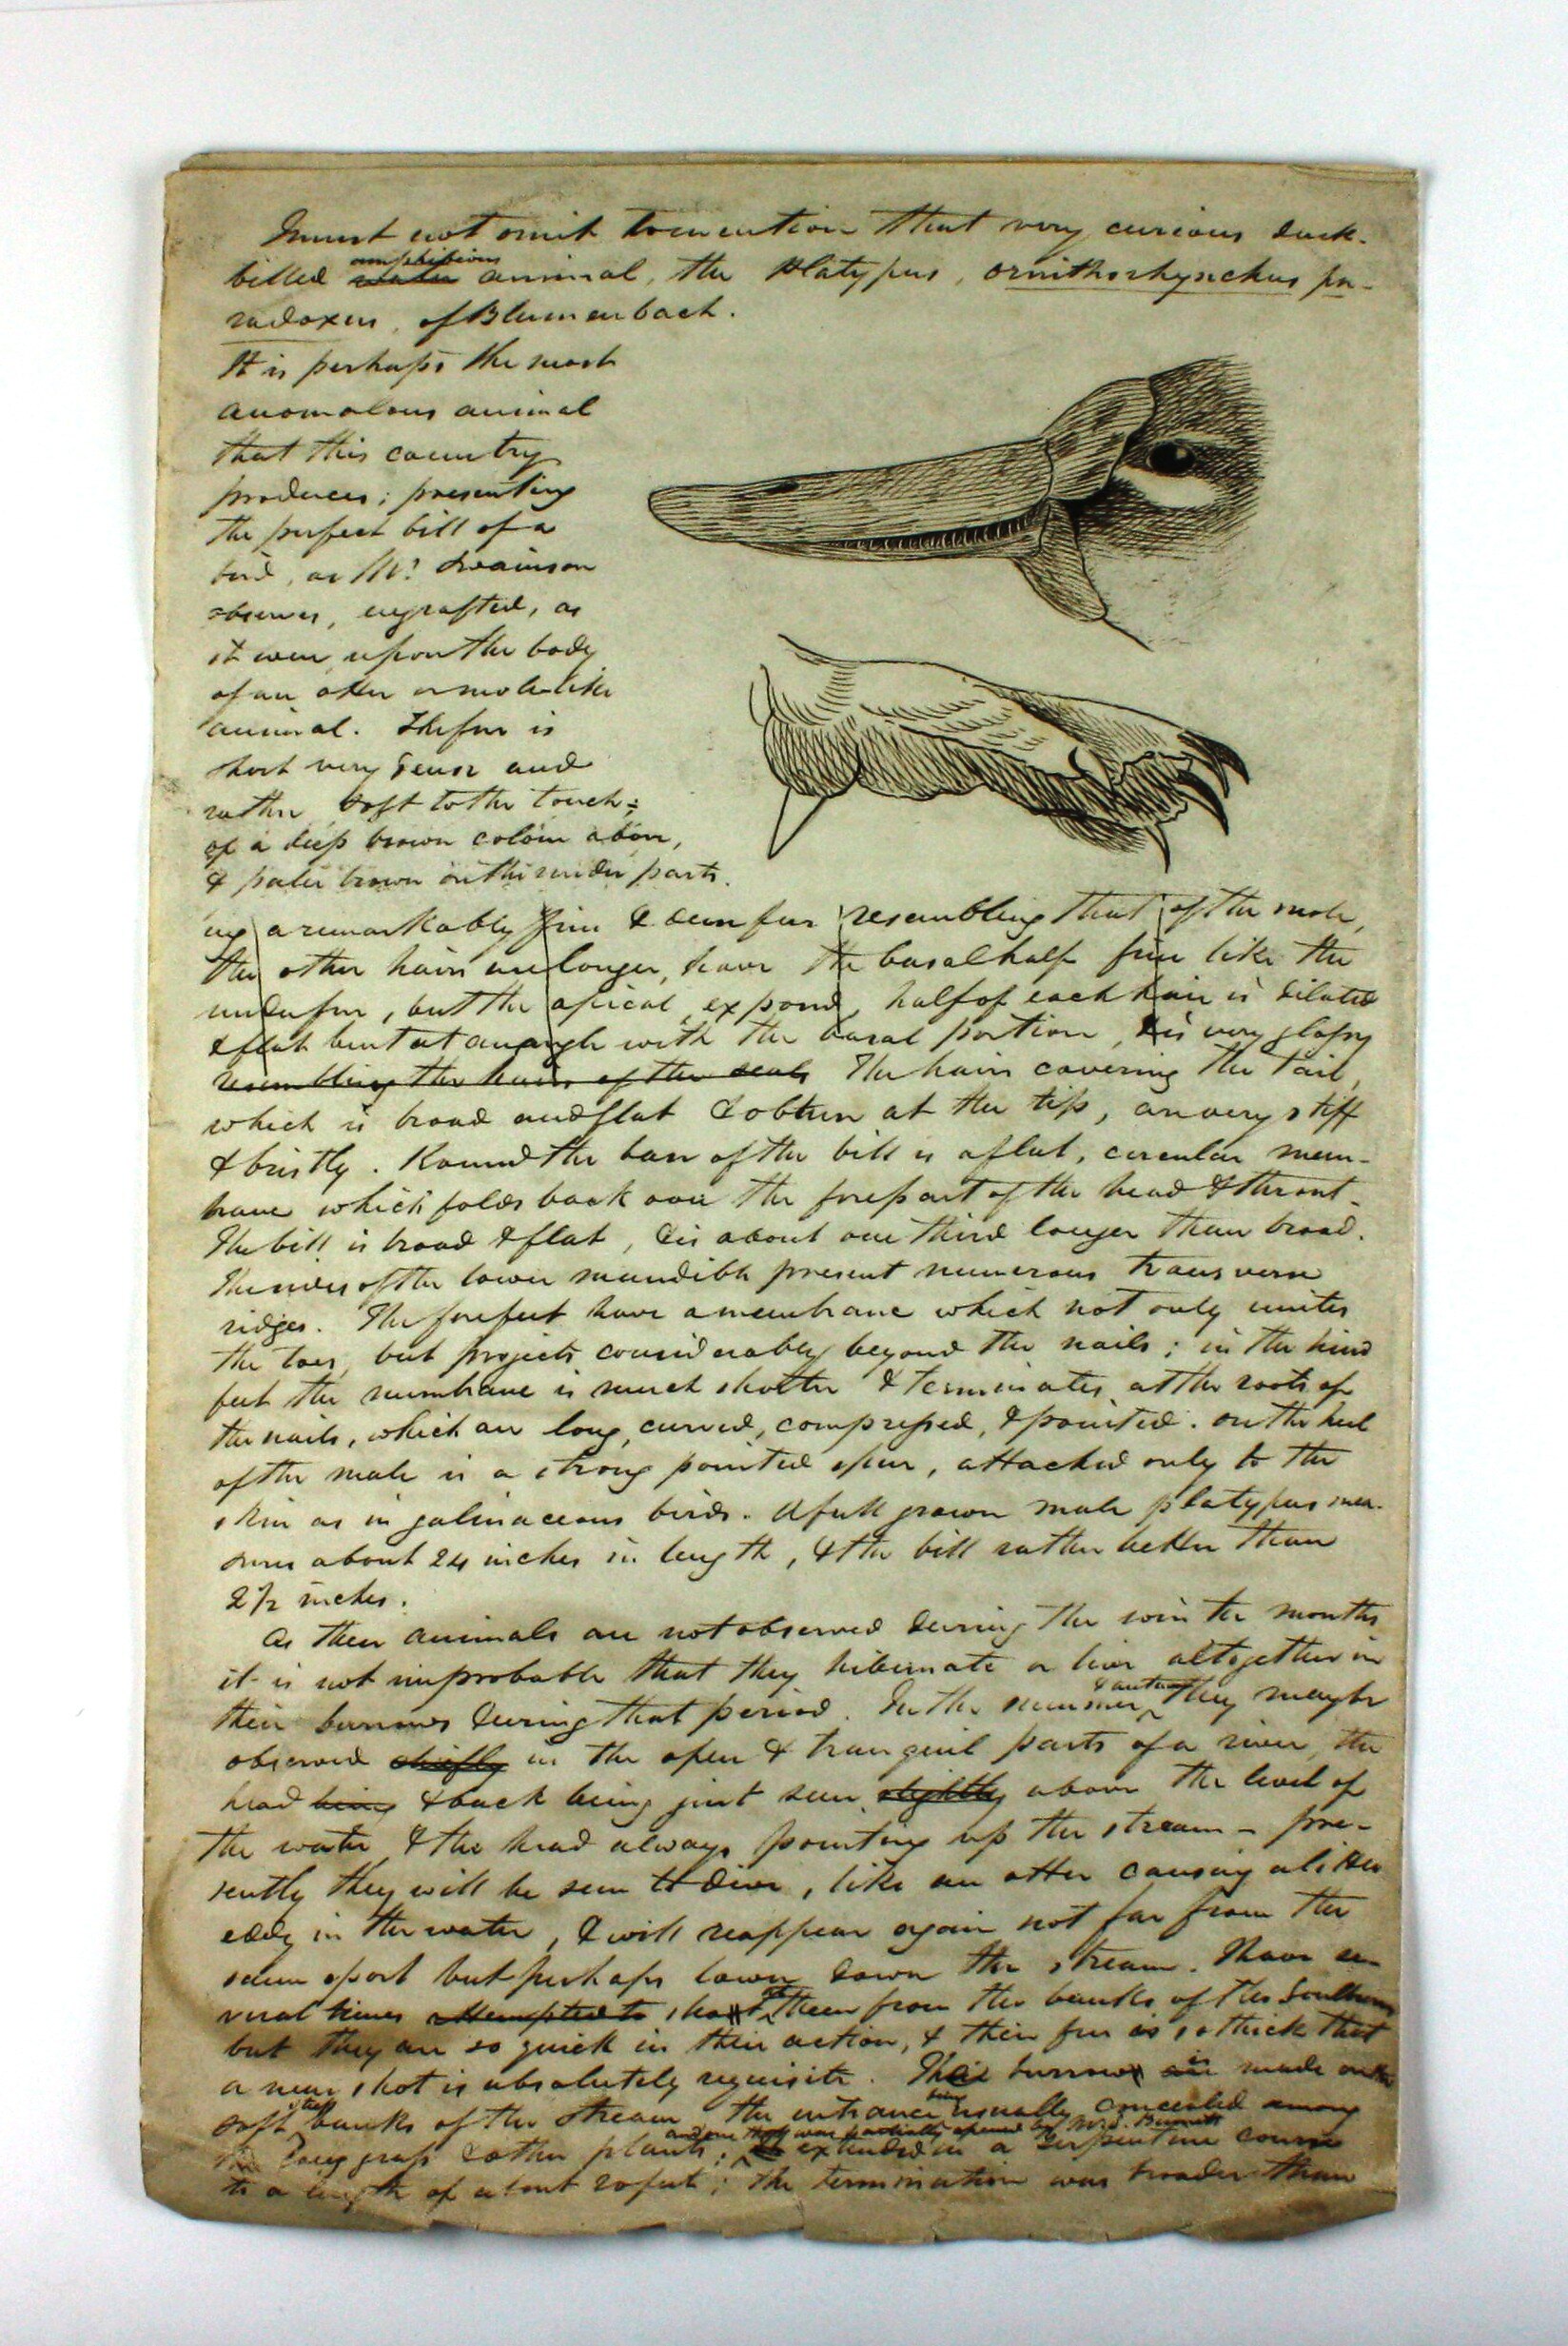 I must not omit to mention that very curious duck-
billed amphibious animal, the Platypus, ornithorhynchus pa-
radoxus, of Blumenbach.
It is perhaps the most
anomalous animal
that this country
produces; presenting
the perfect bill of a
bird, as Mr. Swainson
observes, engrafted, as
it were upon the body
of an otter or mole-like
animal. The fur is
short very dense and
rather soft to the touch;
of a deep brown colour above,
& paler brown on the under parts.
ing a remarkably fine & dense fur resembling that of the mole,
the other hairs are longer, have the basal half fine like the
underfur, but the apical, exposed, half of each hair is dilated
& flat bent at an angle with the basal portion, & is very glossy
resembling the hairs of the seals The hairs covering the tail,
which is broad and flat & obtuse at the tip, are very stiff
& bristly. Round the base of the bill is a flat, circular mem-
brane which folds back over the forepart of the head & throat.
The bill is broad & flat, & is about one third longer than broad.
The sides of the lower mandible present numerous transverse
ridges. The forefeet have a membrane which not only unites
the toes, but projects considerably beyond the nails; in the hind
feet the membrane is much shorter & terminates at the roots of
the nails, which are long, curved, compressed, & pointed. on the heel
of the male is a strong pointed spur, attached only to the
skin as in galinaceous birds. A full grown male platypus mea-
sures about 24 inches in length, & the bill rather better than
2 1/2 inches.
As these animals are not observed during the winter months
it is not improbable that they hibernate or live altogether in
their burrows during that period. In the summer & autumn they may be
observed chiefly in the open & tranquil parts of a river, the
head being & back being just seen slightly above the level of
the water & the head always pointing up the stream - pre-
sently they will be seen to dive, like an otter causing a little
eddy in the water, & will reappear again not far from the
same spot but perhaps lower down the stream. I have se-
veral times attempted to shoot at them from the banks of the
but they are so quick in their action, & their fur is so thick that
a near shot is absolutely requisite. The burrow is made on the
soft steep banks of the stream, the entrance being usually concealed among
the long grass & other plants; and one that was partially opened by Mr. G. Bennett extended in a serpentine course
to a length of about 20 feet; the termination was broader than